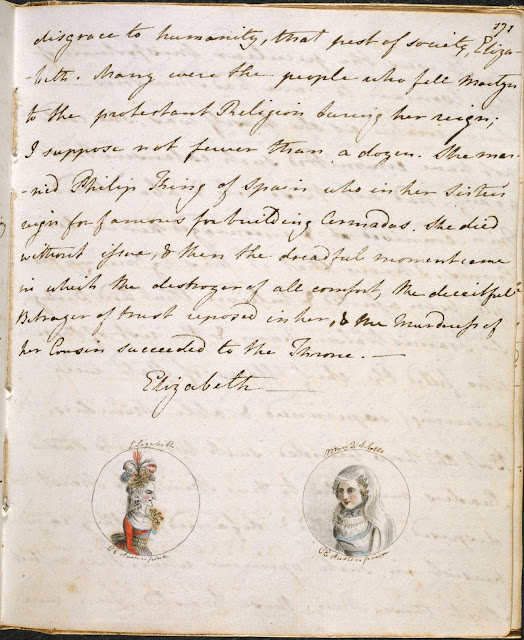 171
disgrace to humanity, that pest of society, Eliza-
-beth. Many were the people who fell Martyrs
to the protestant Religion during her reign;
I suppose not fewer than a dozen. She mar-
-ried Philip King of Spain who in her Sister's
reign for famous for building Armadas. She died
without issue, & then the dreadful moment came
in which the destroyer of all comfort, the deceitful
Betrayer of trust reposed in her, & the Murderess of
her Cousin succeeded to the Throne. —
Elizabeth —
Elizabeth
Mary Q of Scots
CE Austen pinx
CE Austen pinx